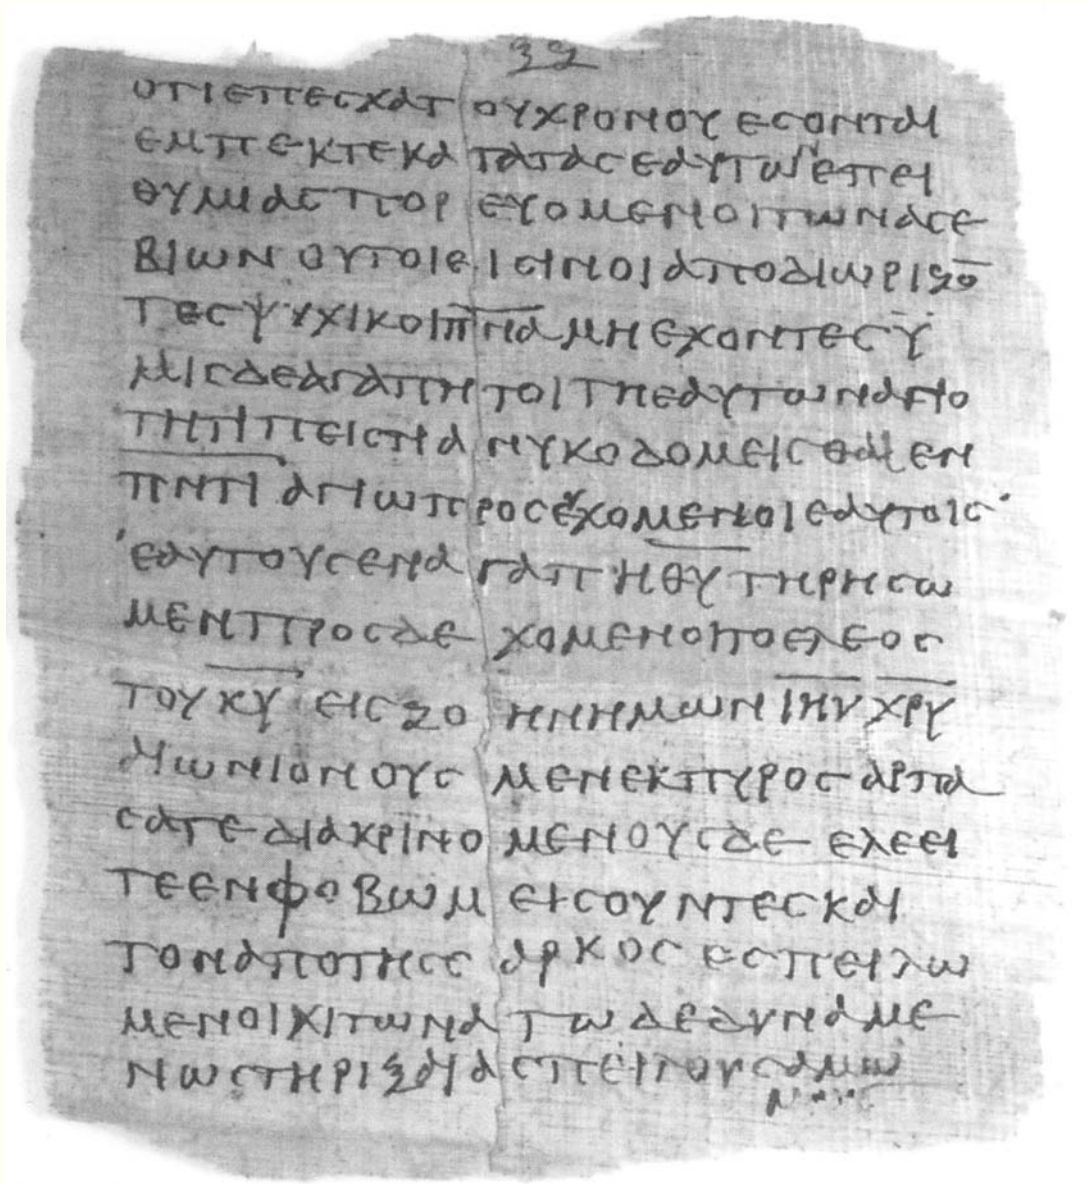 ΞΖ
ΟΤΙΕΠΕϹΧΑΤΟΥΧΡΟΝΟΥΕϹΟΝΤΑΙ
ΕΜΠΕΚΤΕΚΑΤΑΤΑϹΕΑΥΤΩΝΕΠΕΙ
ΘΥΜΙΑϹΠΟΡΕΥΟΜΕΝΟΙΤΩΝΑϹΕ
ΒΙΩΝΟΥΤΟΙΕΙϹΙΝΟΙΑΠΟΔΙΩΡΙΖΟ̅
ΤΕϹΨΥΧΙΚΟΙΠ̅Ν̅Α̅ΜΗΕΧΟΝΤΕϹΫ
ΜΙϹΔΕΑΓΑΠΗΤΟΙΤΗΕΑΥΤΩΝΑΓΙΟ
ΤΗΤΙΠΕΙϹΤΙΑΝΥΚΟΔΟΜΕΙϹΘΑΙΕΝ
Π̅Ν̅Τ̅Ι̅ΑΓΙΩΠΡΟϹΕΥΧΟΜΕΝΟΙΕΑΥΤΟΙϹ
ΕΑΥΤΟΥϹΕΝΑΓΑΠΗΘ̅Υ̅ΤΗΡΗϹΩ
ΜΕΝΠΡΟϹΔΕΧΟΜΕΝΟΙΤΟΕΛΕΟϹ
ΤΟΥΚ̅Υ̅ΕΙϹΖΟΗΝΗΜΩΝΙ̅Η̅Υ̅Χ̅Ρ̅Υ̅
ΑΙΩΝΙΟΝΟΥϹΜΕΝΕΚΠΥΡΟϹΑΡΠΑ
ϹΑΤΕΔΙΑΚΡΙΝΟΜΕΝΟΥϹΔΕΕΛΕΕΙ
ΤΕΕΝΦΟΒΩΜΕΙϹΟΥΝΤΕϹΚΑΙ
ΤΟΝΑΠΟΤΗϹϹΑΡΚΟϹΕϹΠΕΙΛΩ
ΜΕΝΟΙΧΙΤΩΝΑΤΩΔΕΔΥΝΑΜΕ
ΝΩϹΤΗΡΙΞΑΙΑϹΠΕΙΛΟΥϹΑΜΩ